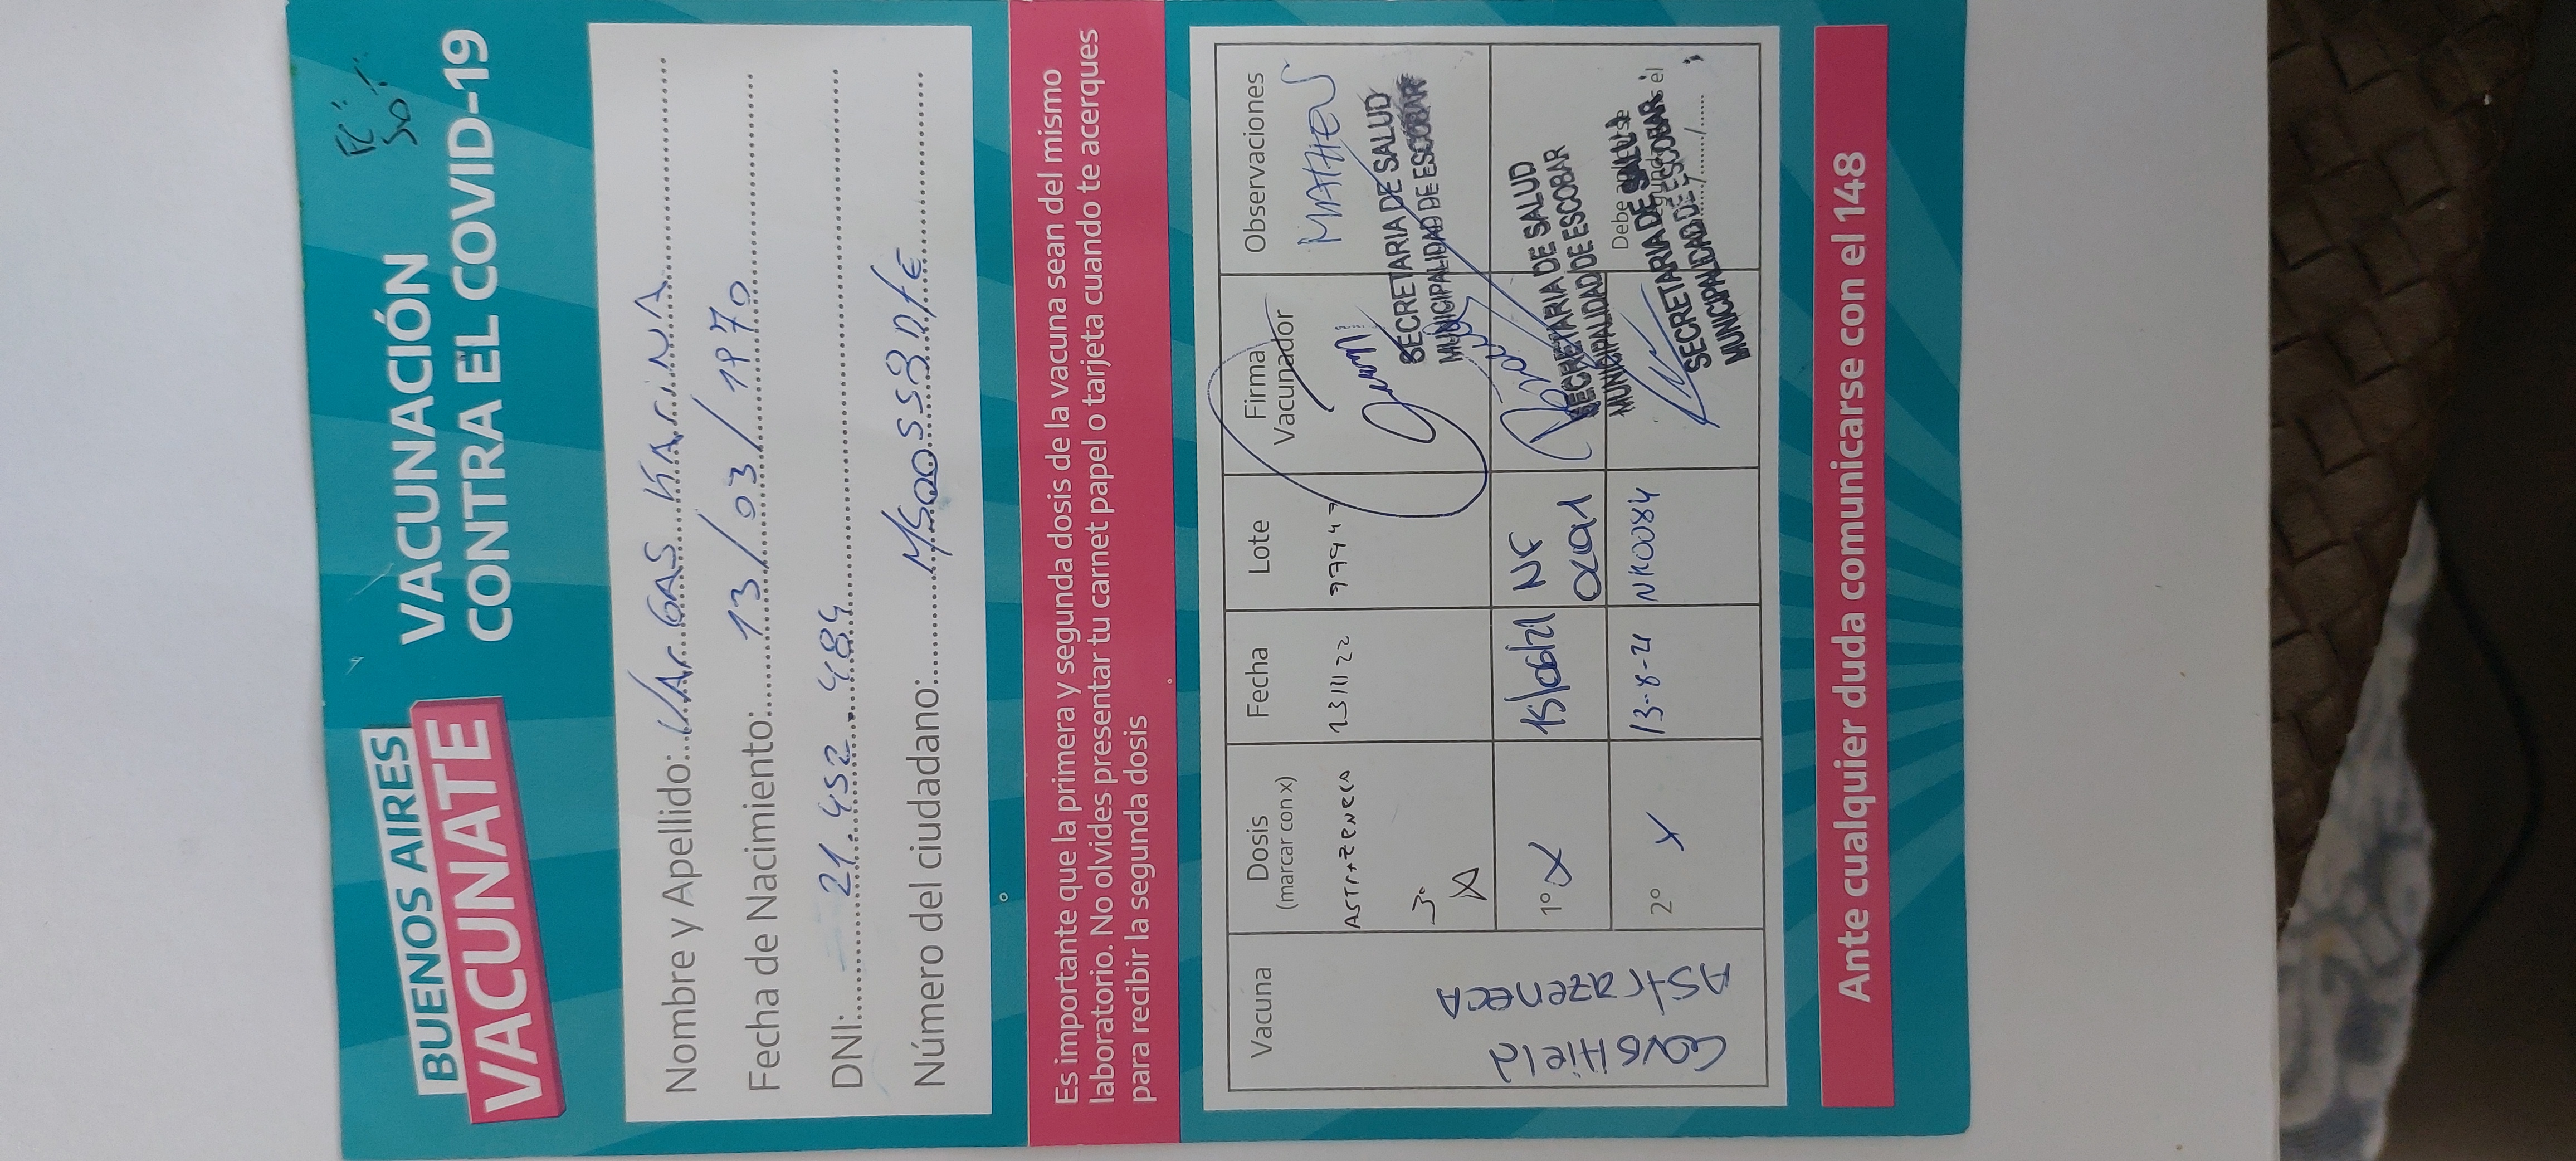 FC
BUENOS AIRES
VACUNATE
VACUNACIÓN
CONTRA EL COVID-19
Nombre y Apellido: VArGAS KAriNA
Fecha de Nacimiento: 13/03/1970
DNI: 21.452.484
Número del ciudadano:
Es importante que la primera y segunda dosis de la vacuna sean del mismo
laboratorio. No olvides presentar tu carnet papel o tarjeta cuando te acerques
para recibir la segunda dosis
Vacuna Dosis (marcar con x) Fecha Lote Firma Vacunador Observaciones
AStrAZENECA 22 MATHEU
3° X
SECRETARIA DE SALUD
MUNICIPALIDAD DE ESCOBAR
CovsHield
AstrazenecA
1° X 15/06/21 NF
SECRETARIA DE SALUD
MUNICIPALIDAD DE ESCOBAR
2° X 13-8-21 NR0084
Debe aplicarse
SECRETARIA DE SALUD
MUNICIPALIDAD DE ESCOBAR
Ante cualquier duda comunicarse con el 148